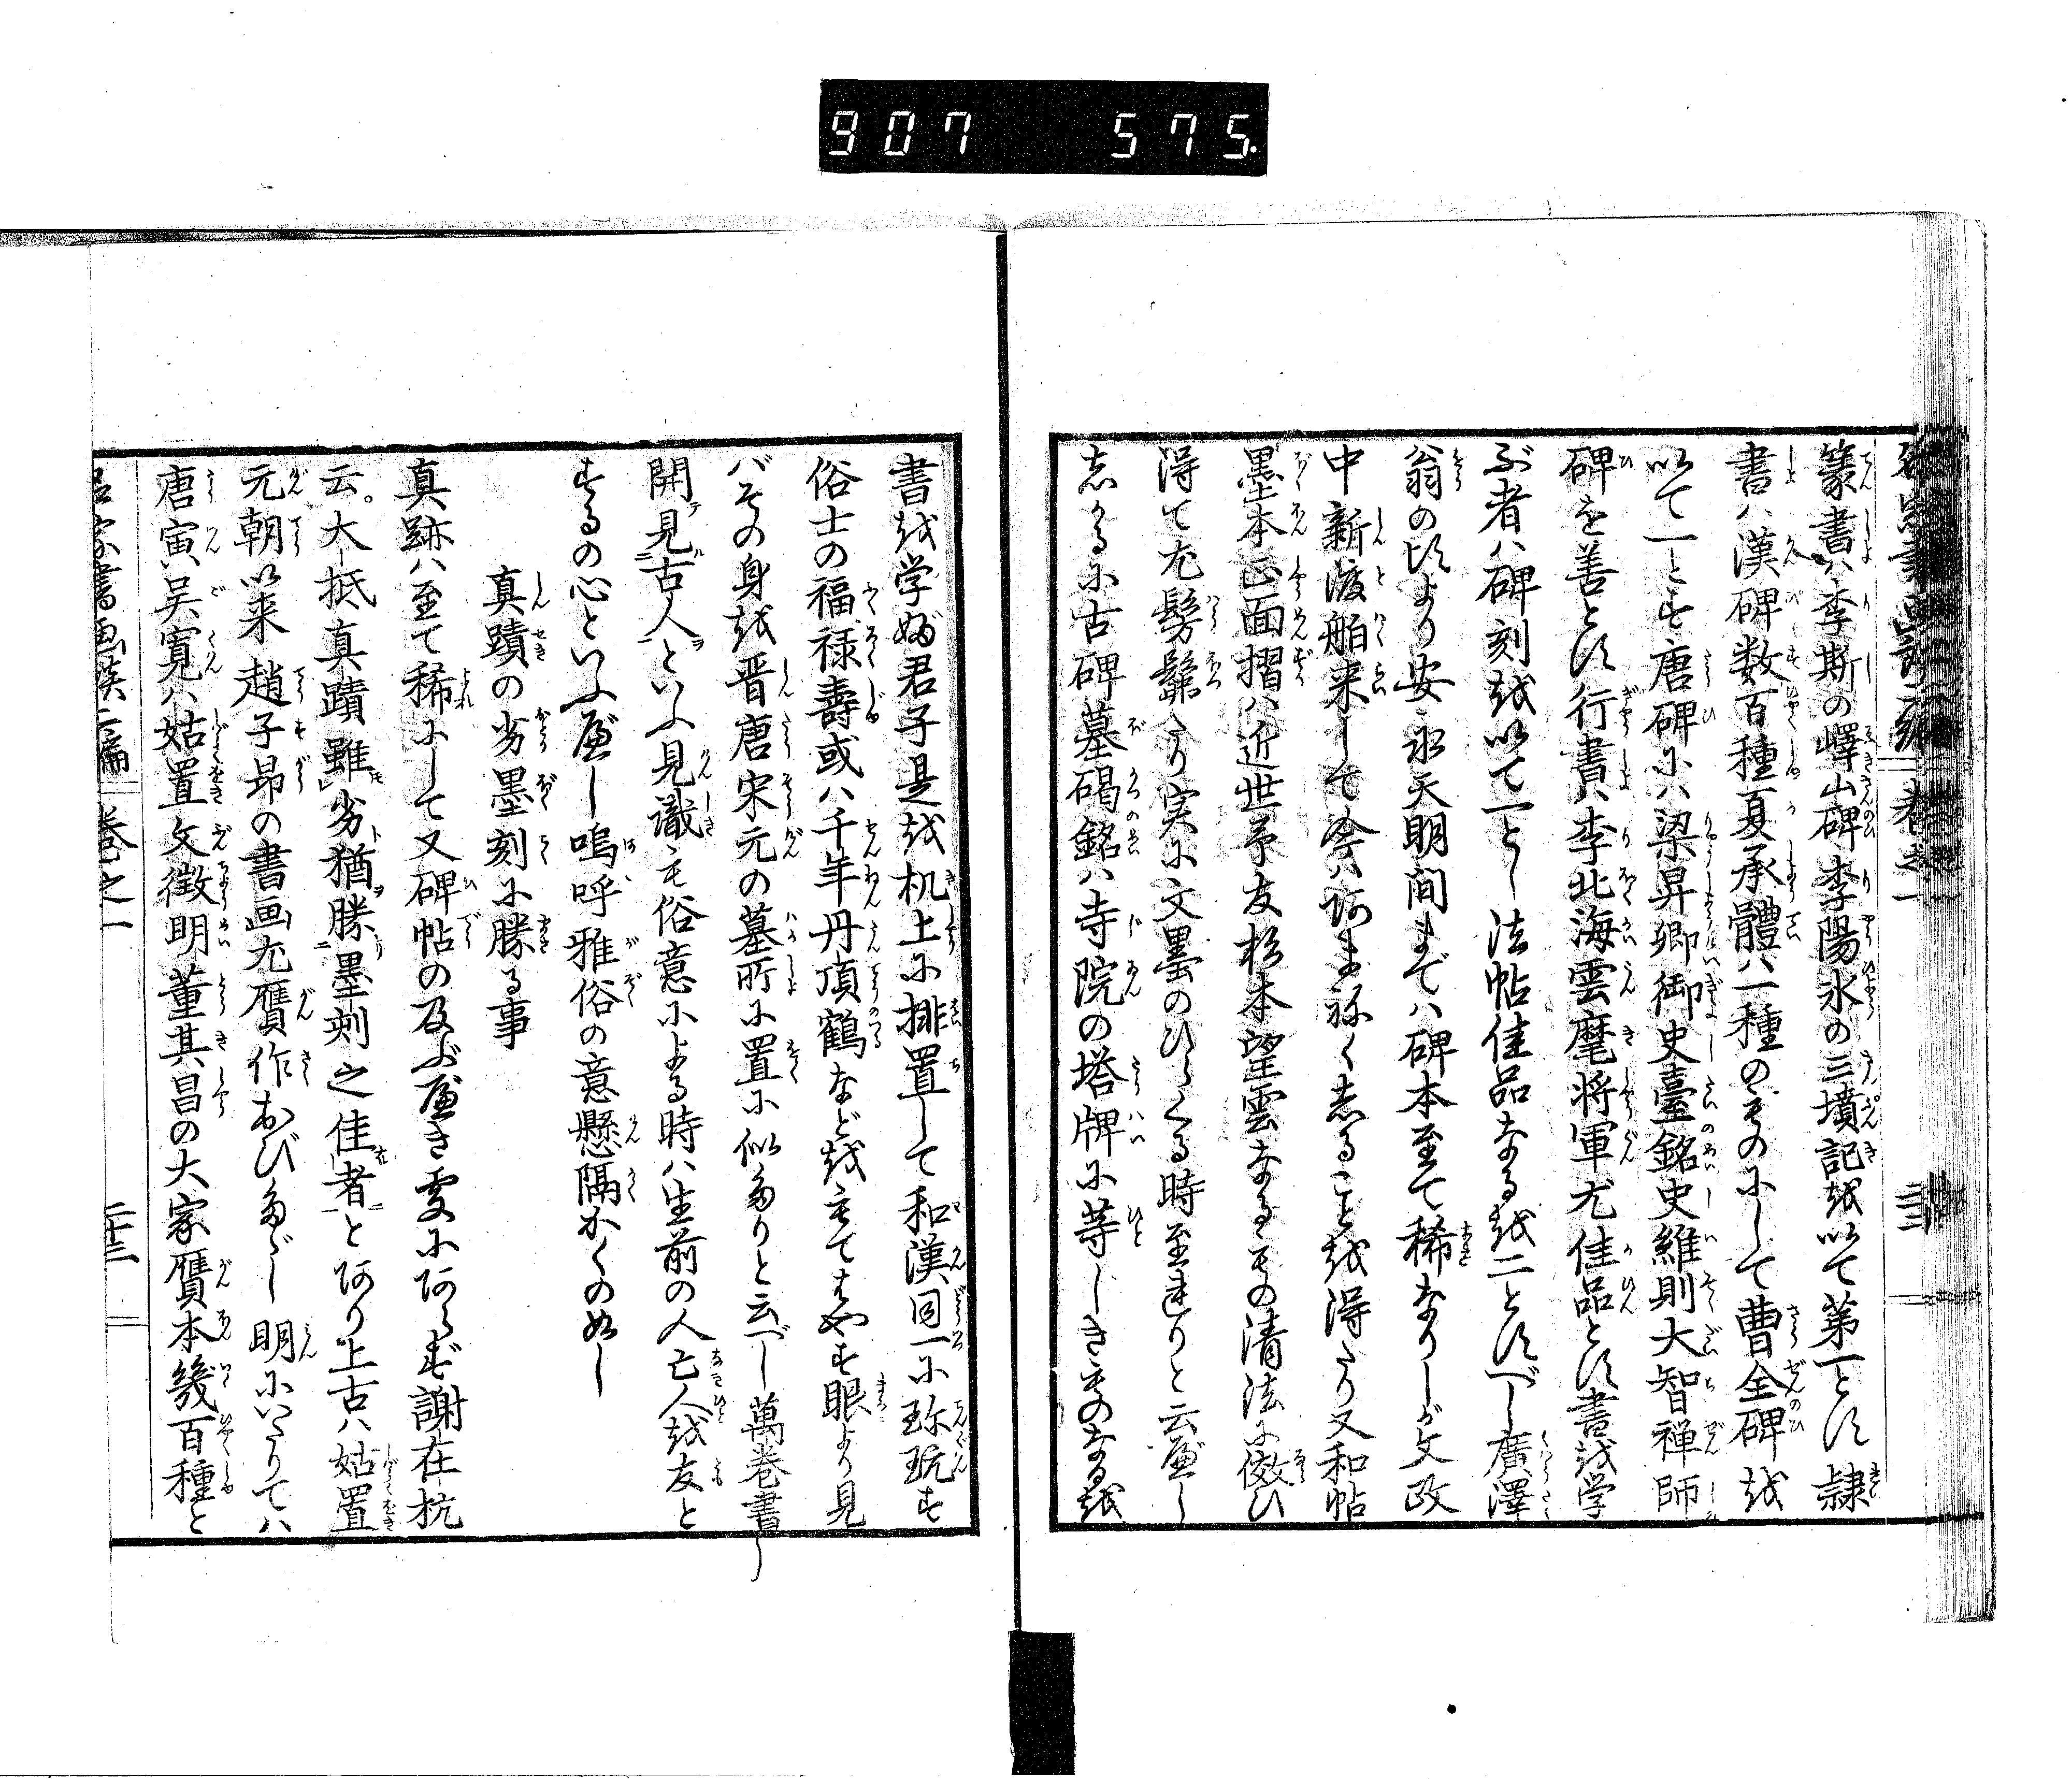 907 575.
篆書ハ李斯の嶧山碑李陽氷の三墳記越以て第一とす隷
書ハ漢碑数百種夏承體ハ一種のものにして曹全碑越
以て一とす唐碑にハ梁昇卿御史臺銘史維則大智禅師
碑を善とす行書ハ李北海雲麾将軍尤佳品とす書越学
ぶ者ハ碑刻越以て一とし法帖佳品なる越二とすべし廣澤
翁の頃より安永天明間までハ碑本至て稀なりしが文政
中新渡舶来して今ハあまねくしること越得たり又和帖
墨本正面摺ハ近世予友杉本望雲なるもの清法に倣ひ
得て尤髣髴たり実に文墨のひらくる時至連りと云べし
しかるに古碑墓碣銘ハ寺院の塔牌に等しきものなる越
書越学ぶ君子是越机上に排置して和漢同一に珎玩す
俗士の福禄壽或ハ千年丹頂鶴など越もてはやす眼より見
バその身越晋唐宋元の墓所に置に似たりと云べし萬巻書
開見古人といふ見識も俗意による時ハ生前の人亡人越友と
するの心といふべし嗚呼雅俗の意懸隔かくの如し
真蹟の劣墨刻に勝る事
真跡ハ至て稀にして又碑帖の及ぶべき処にあらず謝在杭
云。大抵真蹟雖劣猶勝墨刻之佳者とあり上古ハ姑置
元朝以来趙子昂の書画尤贋作おびたゞし明にいたりてハ
唐寅呉寛ハ姑置文徴明董其昌の大家贋本幾百種と
名家書画談二編 巻之一 二十三